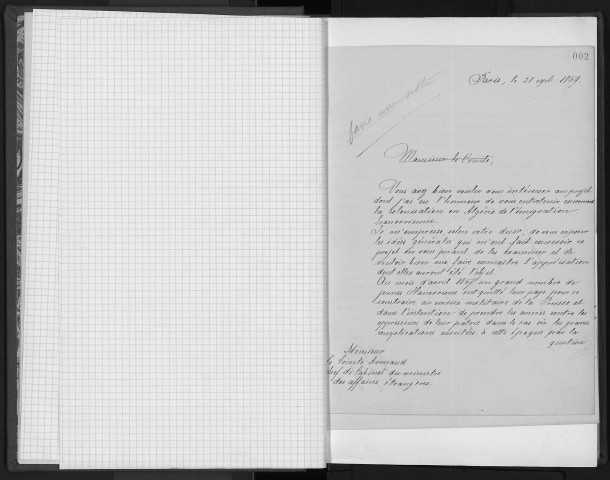 002
Paris, le 28 sept. 1869.
Monsieur le Comte,
Vous avez bien voulu vous intéresser au projet
dont j'ai eu l'honneur de vous entretenir concernant
la colonisation en Algérie de l'émigration
hanovrienne.
Je m'empresse, selon votre désir, de vous exposer
les idées générales qui m'ont fait concevoir ce
projet en vous priant de les examiner et de
vouloir bien me faire connaître l'appréciation
dont elles auront été l'objet.
Au mois d'avril 1867 un grand nombre de
jeunes Hanovriens ont quitté leur pays pour se
soustraire au service militaire de la Prusse et
dans l'intention de prendre les armes contre les
oppresseurs de leur patrie dans le cas où les graves
complications suscitées à cette époque par la
question
Monsieur
le Comte Armand
chef de Cabinet du ministre
des affaires étrangères.